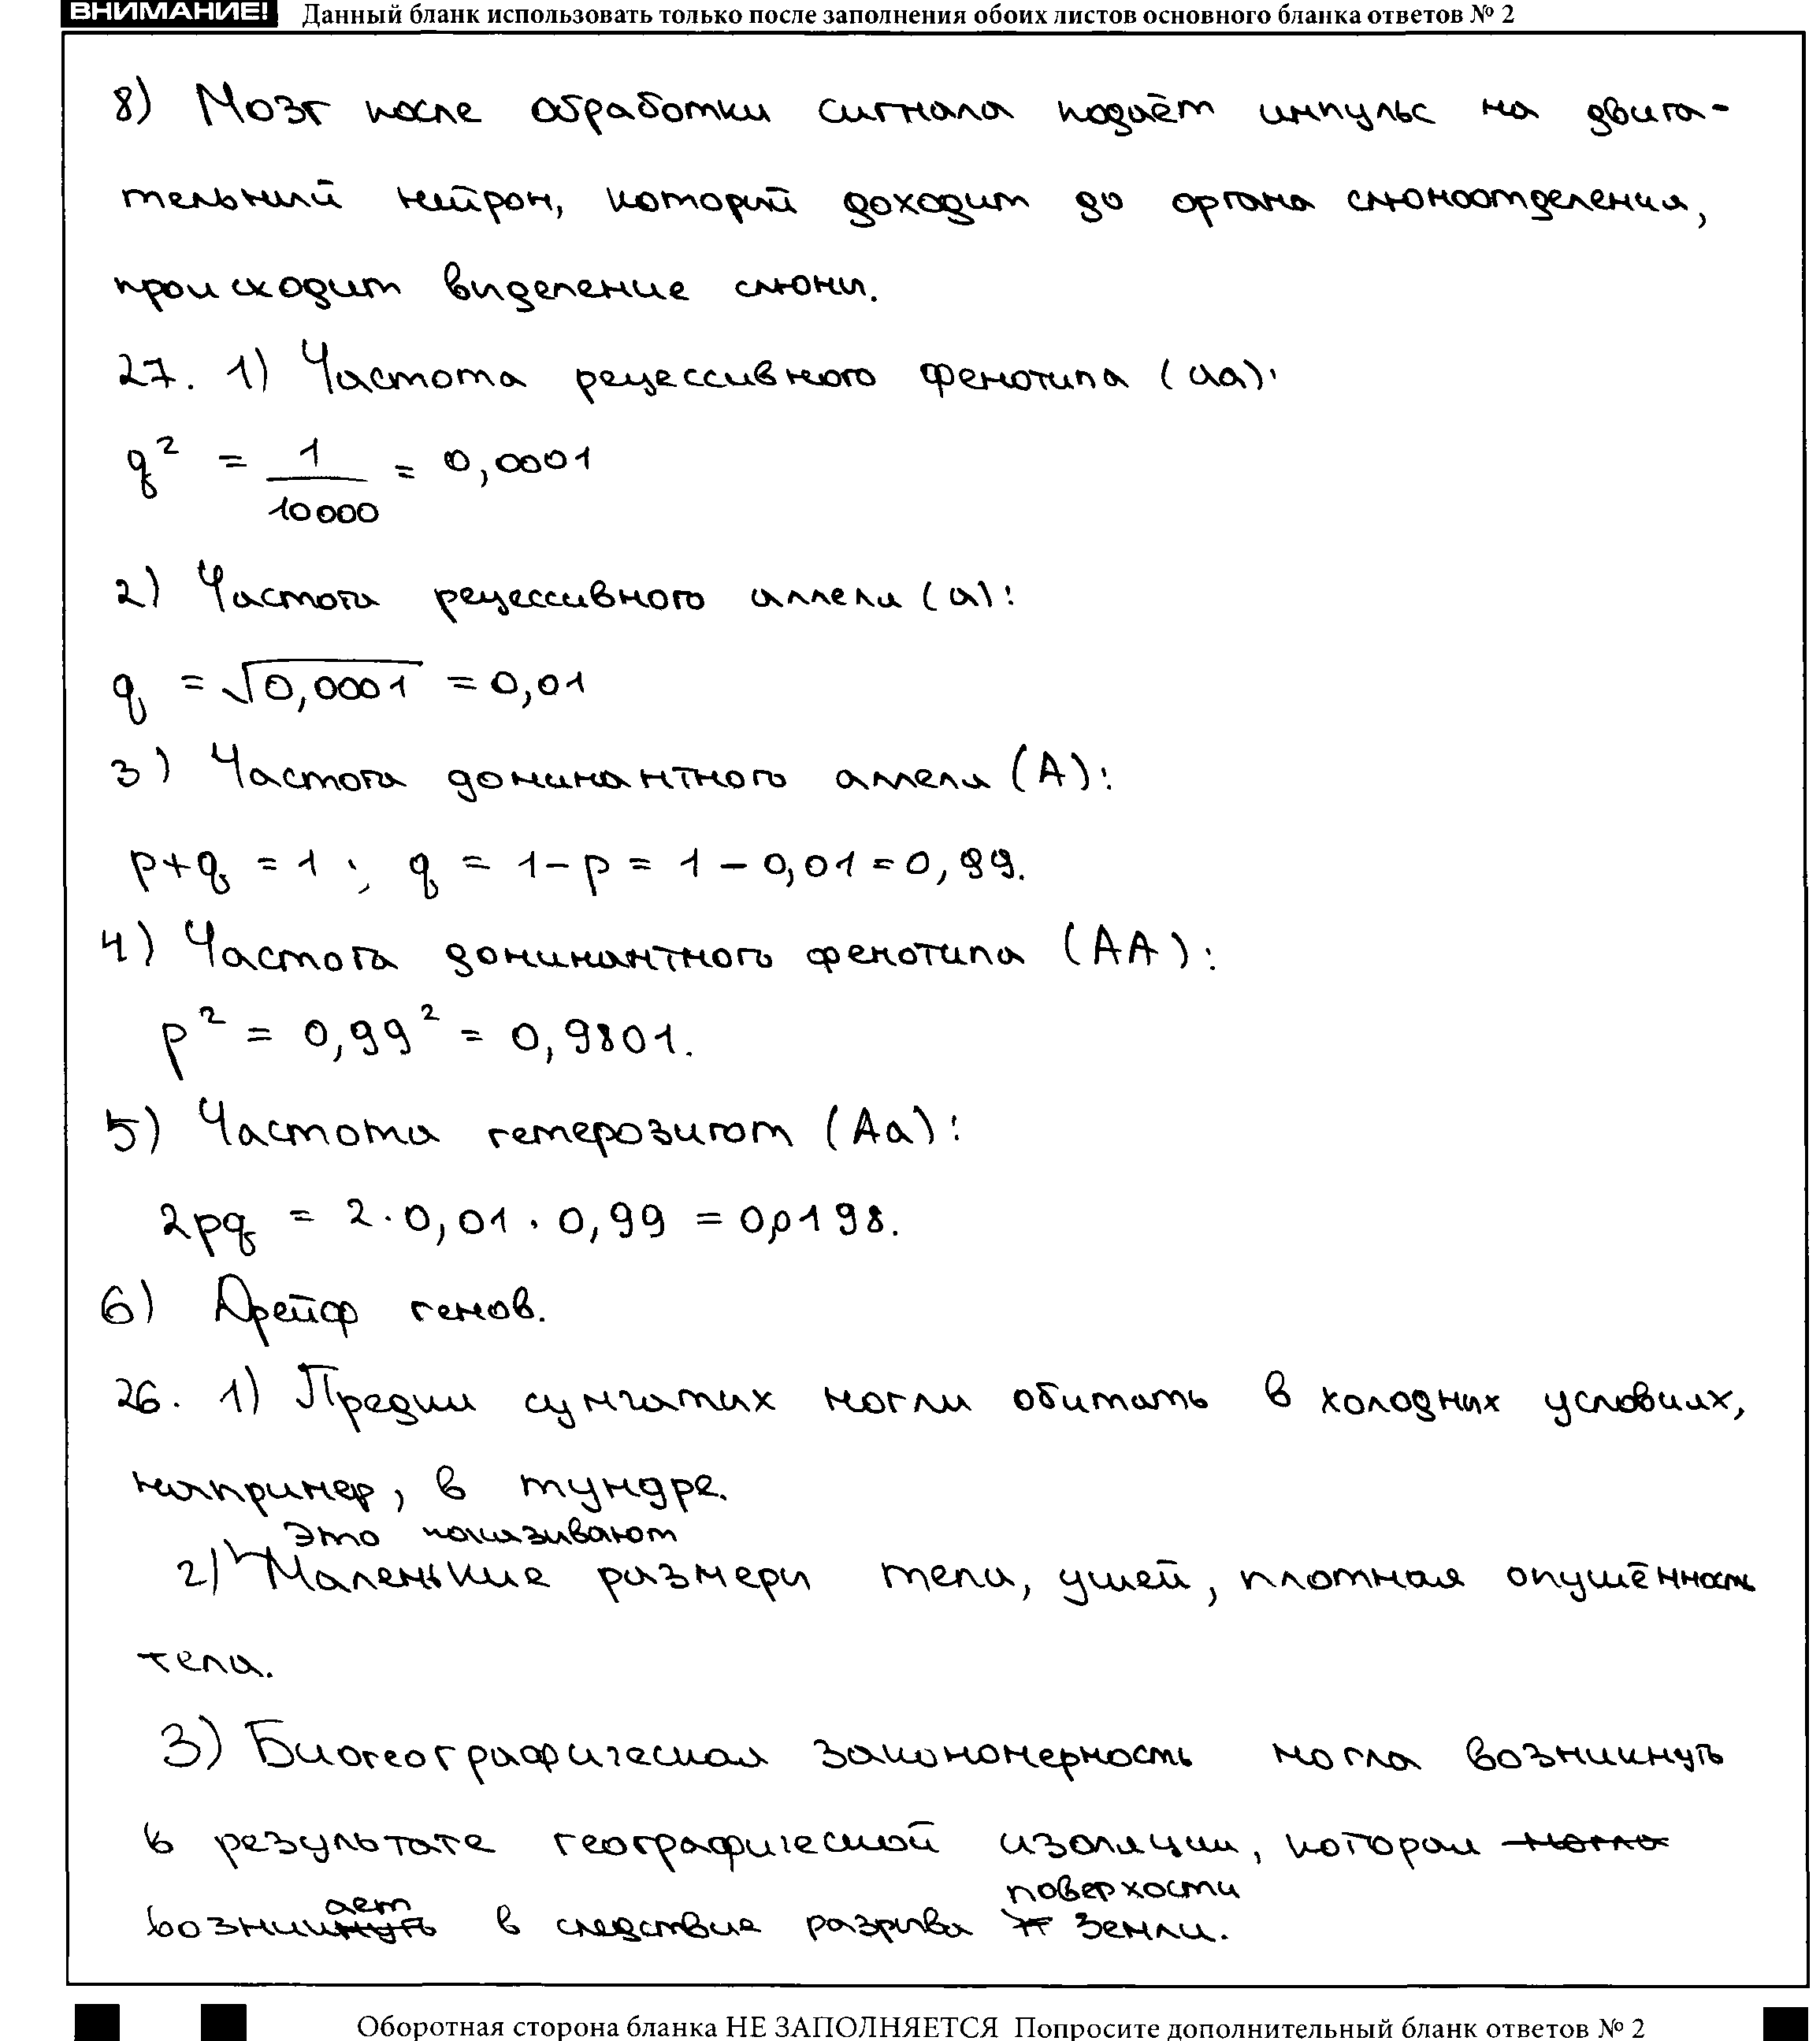 ВНИМАНИЕ! Данный бланк использовать только после заполнения обоих листов основного бланка ответов № 2
8) Мозг после обработки сигнала подаёт импульс на двига-
тельный нейрон, который доходит до органа слюноотделения,
происходит выделение слюны.
27. 1) Частота рецессивного фенотипа (aa):
q² = 1/10000 = 0,0001
2) Частота рецессивного аллеля (a):
q = √0,0001 = 0,01
3) Частота доминантного аллеля (A):
p+q = 1 ; q = 1-p = 1-0,01=0,99.
4) Частота доминантного фенотипа (AA):
p² = 0,99² = 0,9801.
5) Частота гетерозигот (Aa):
2pq = 2·0,01·0,99 = 0,0198.
6) Дрейф генов.
26. 1) Предки сумчатых могли обитать в холодных условиях,
например, в тундре.
Это показывают
2) Маленькие размеры тела, ушей, плотная опушённость
тела.
3) Биогеографическая закономерность могла возникнуть
в результате географической изоляции, которая могла
ает поверхности
возникнуть в следствие разрыва Земли.
Оборотная сторона бланка НЕ ЗАПОЛНЯЕТСЯ Попросите дополнительный бланк ответов № 2